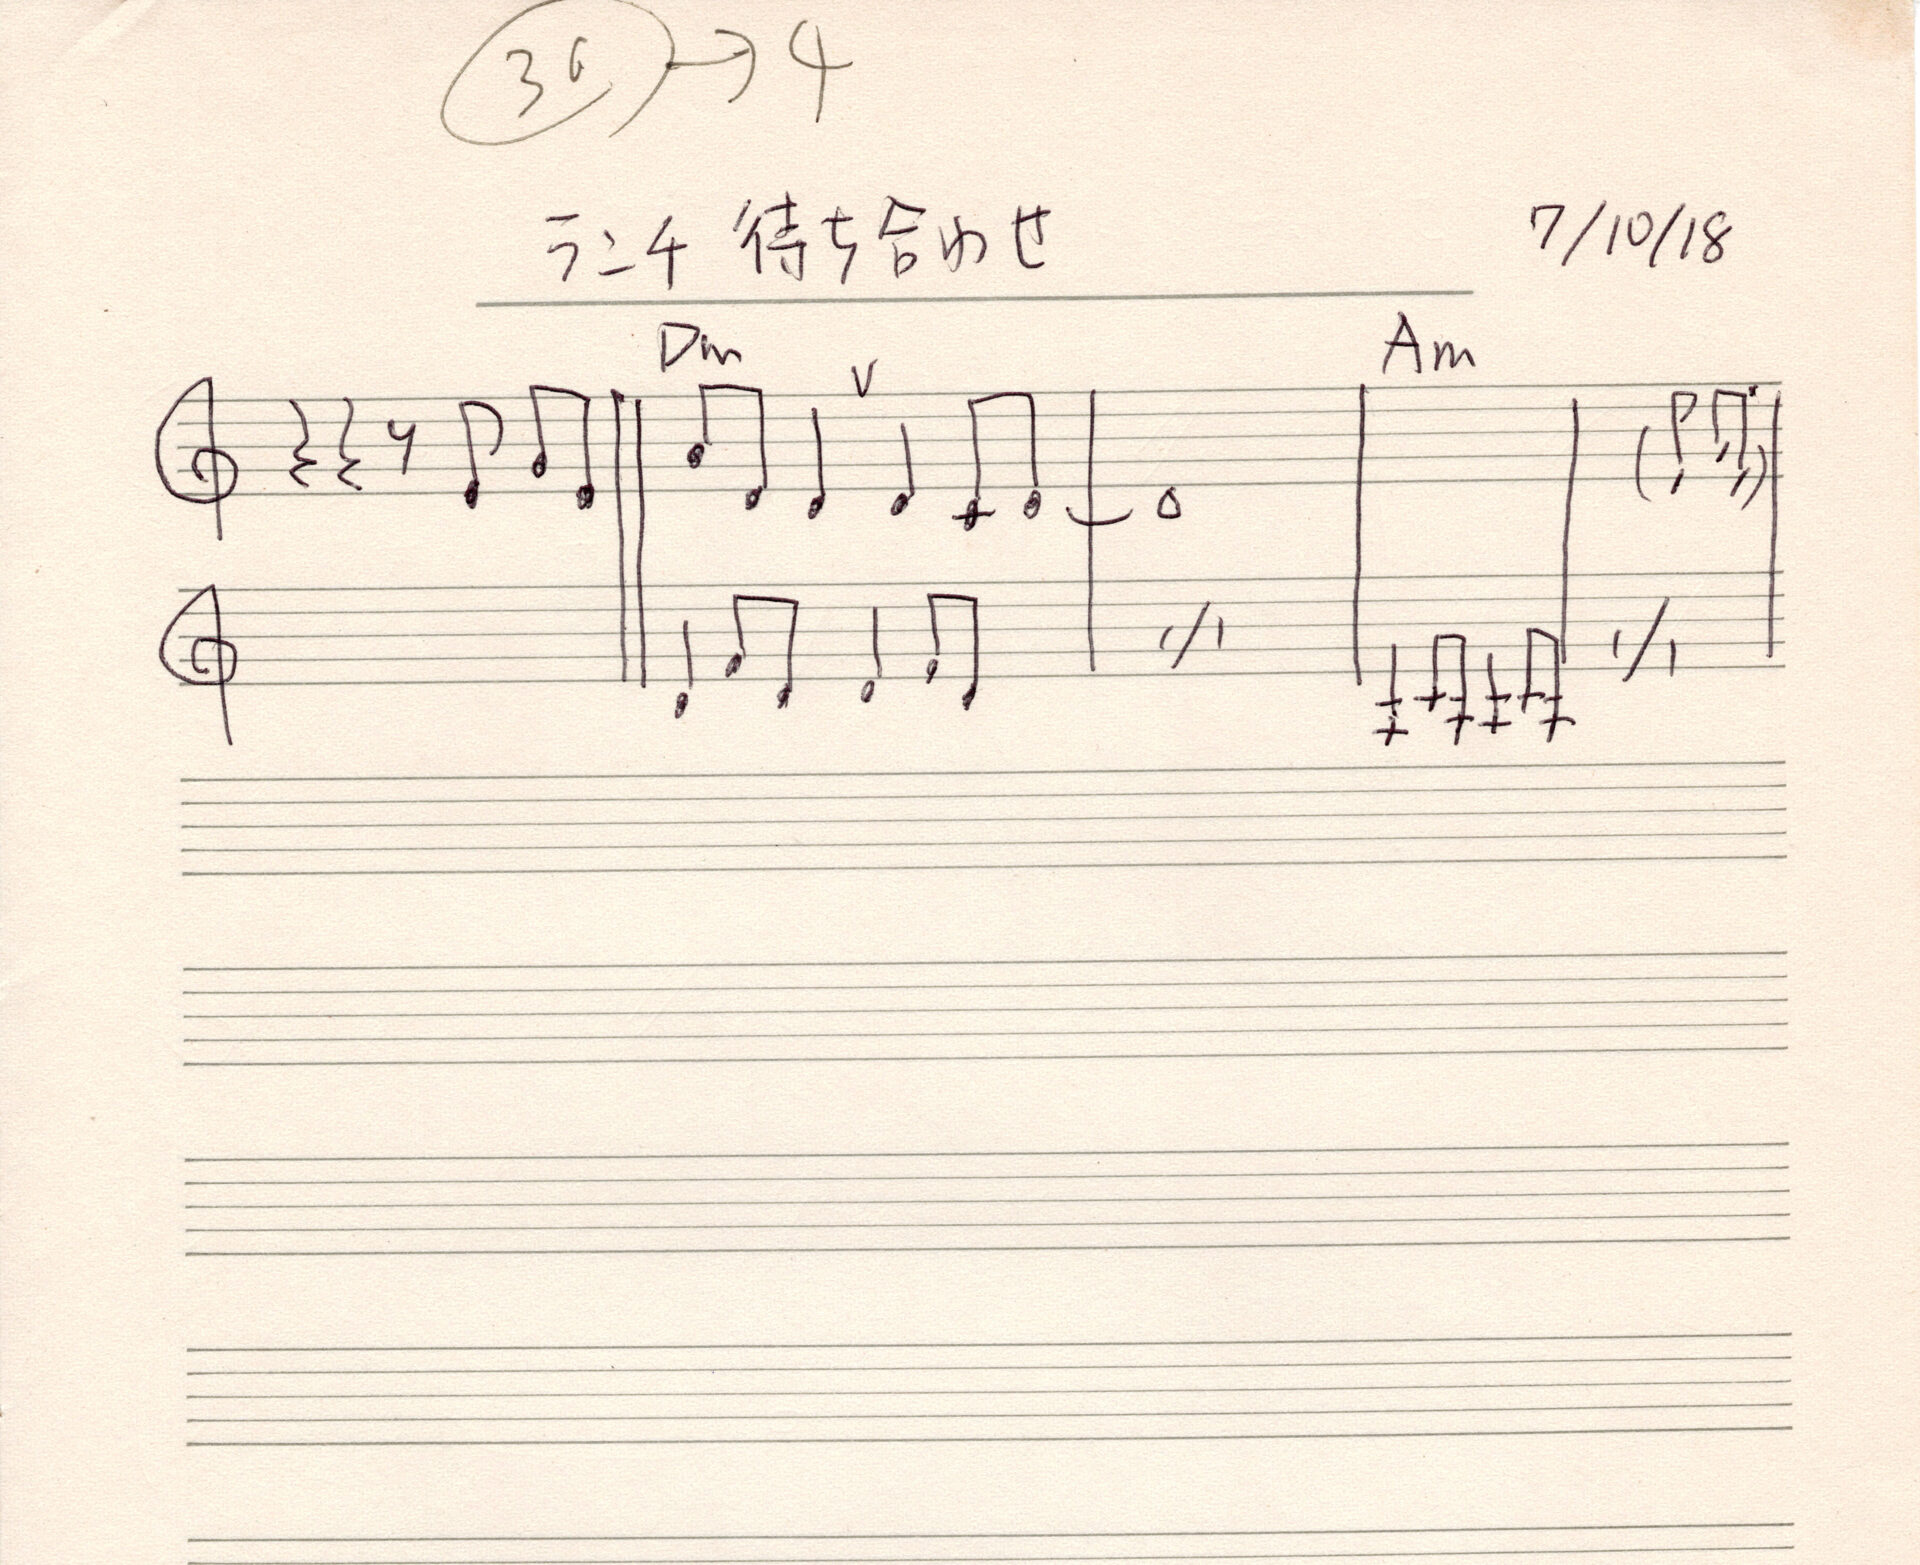 36 → 4
ランチ 待ち合わせ 7/10/18
Dm V Am